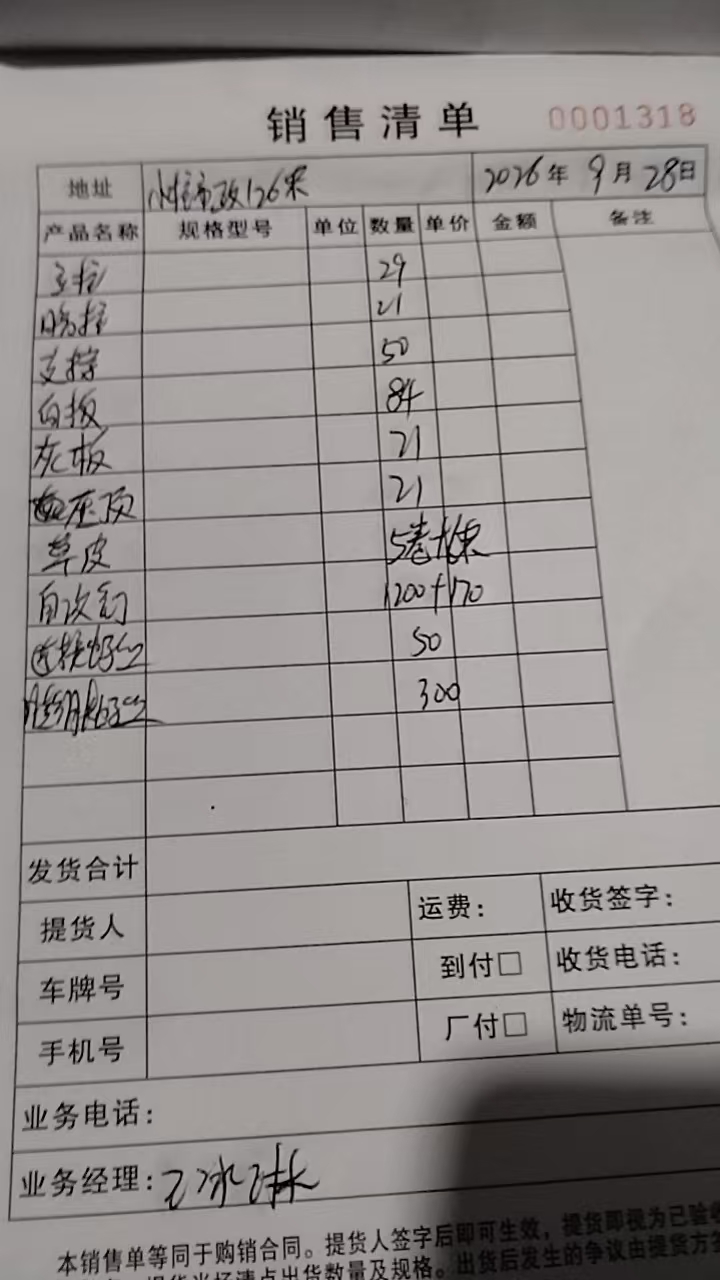 销售清单 0001318
地址 市政126米 2026年9月28日
产品名称 规格型号 单位 数量 单价 金额 备注
主柱 29
21
支撑 50
白板 84
灰板 21
压顶 21
草皮 5卷
自攻钉 1200+170
连接 50
300
发货合计
提货人 运费: 收货签字:
车牌号 到付□ 收货电话:
手机号 厂付□ 物流单号:
业务电话:
业务经理:
本销售单等同于购销合同。提货人签字后即可生效，提货即视为已验收
提货当场清点出货数量及规格。出货后发生的争议由提货方